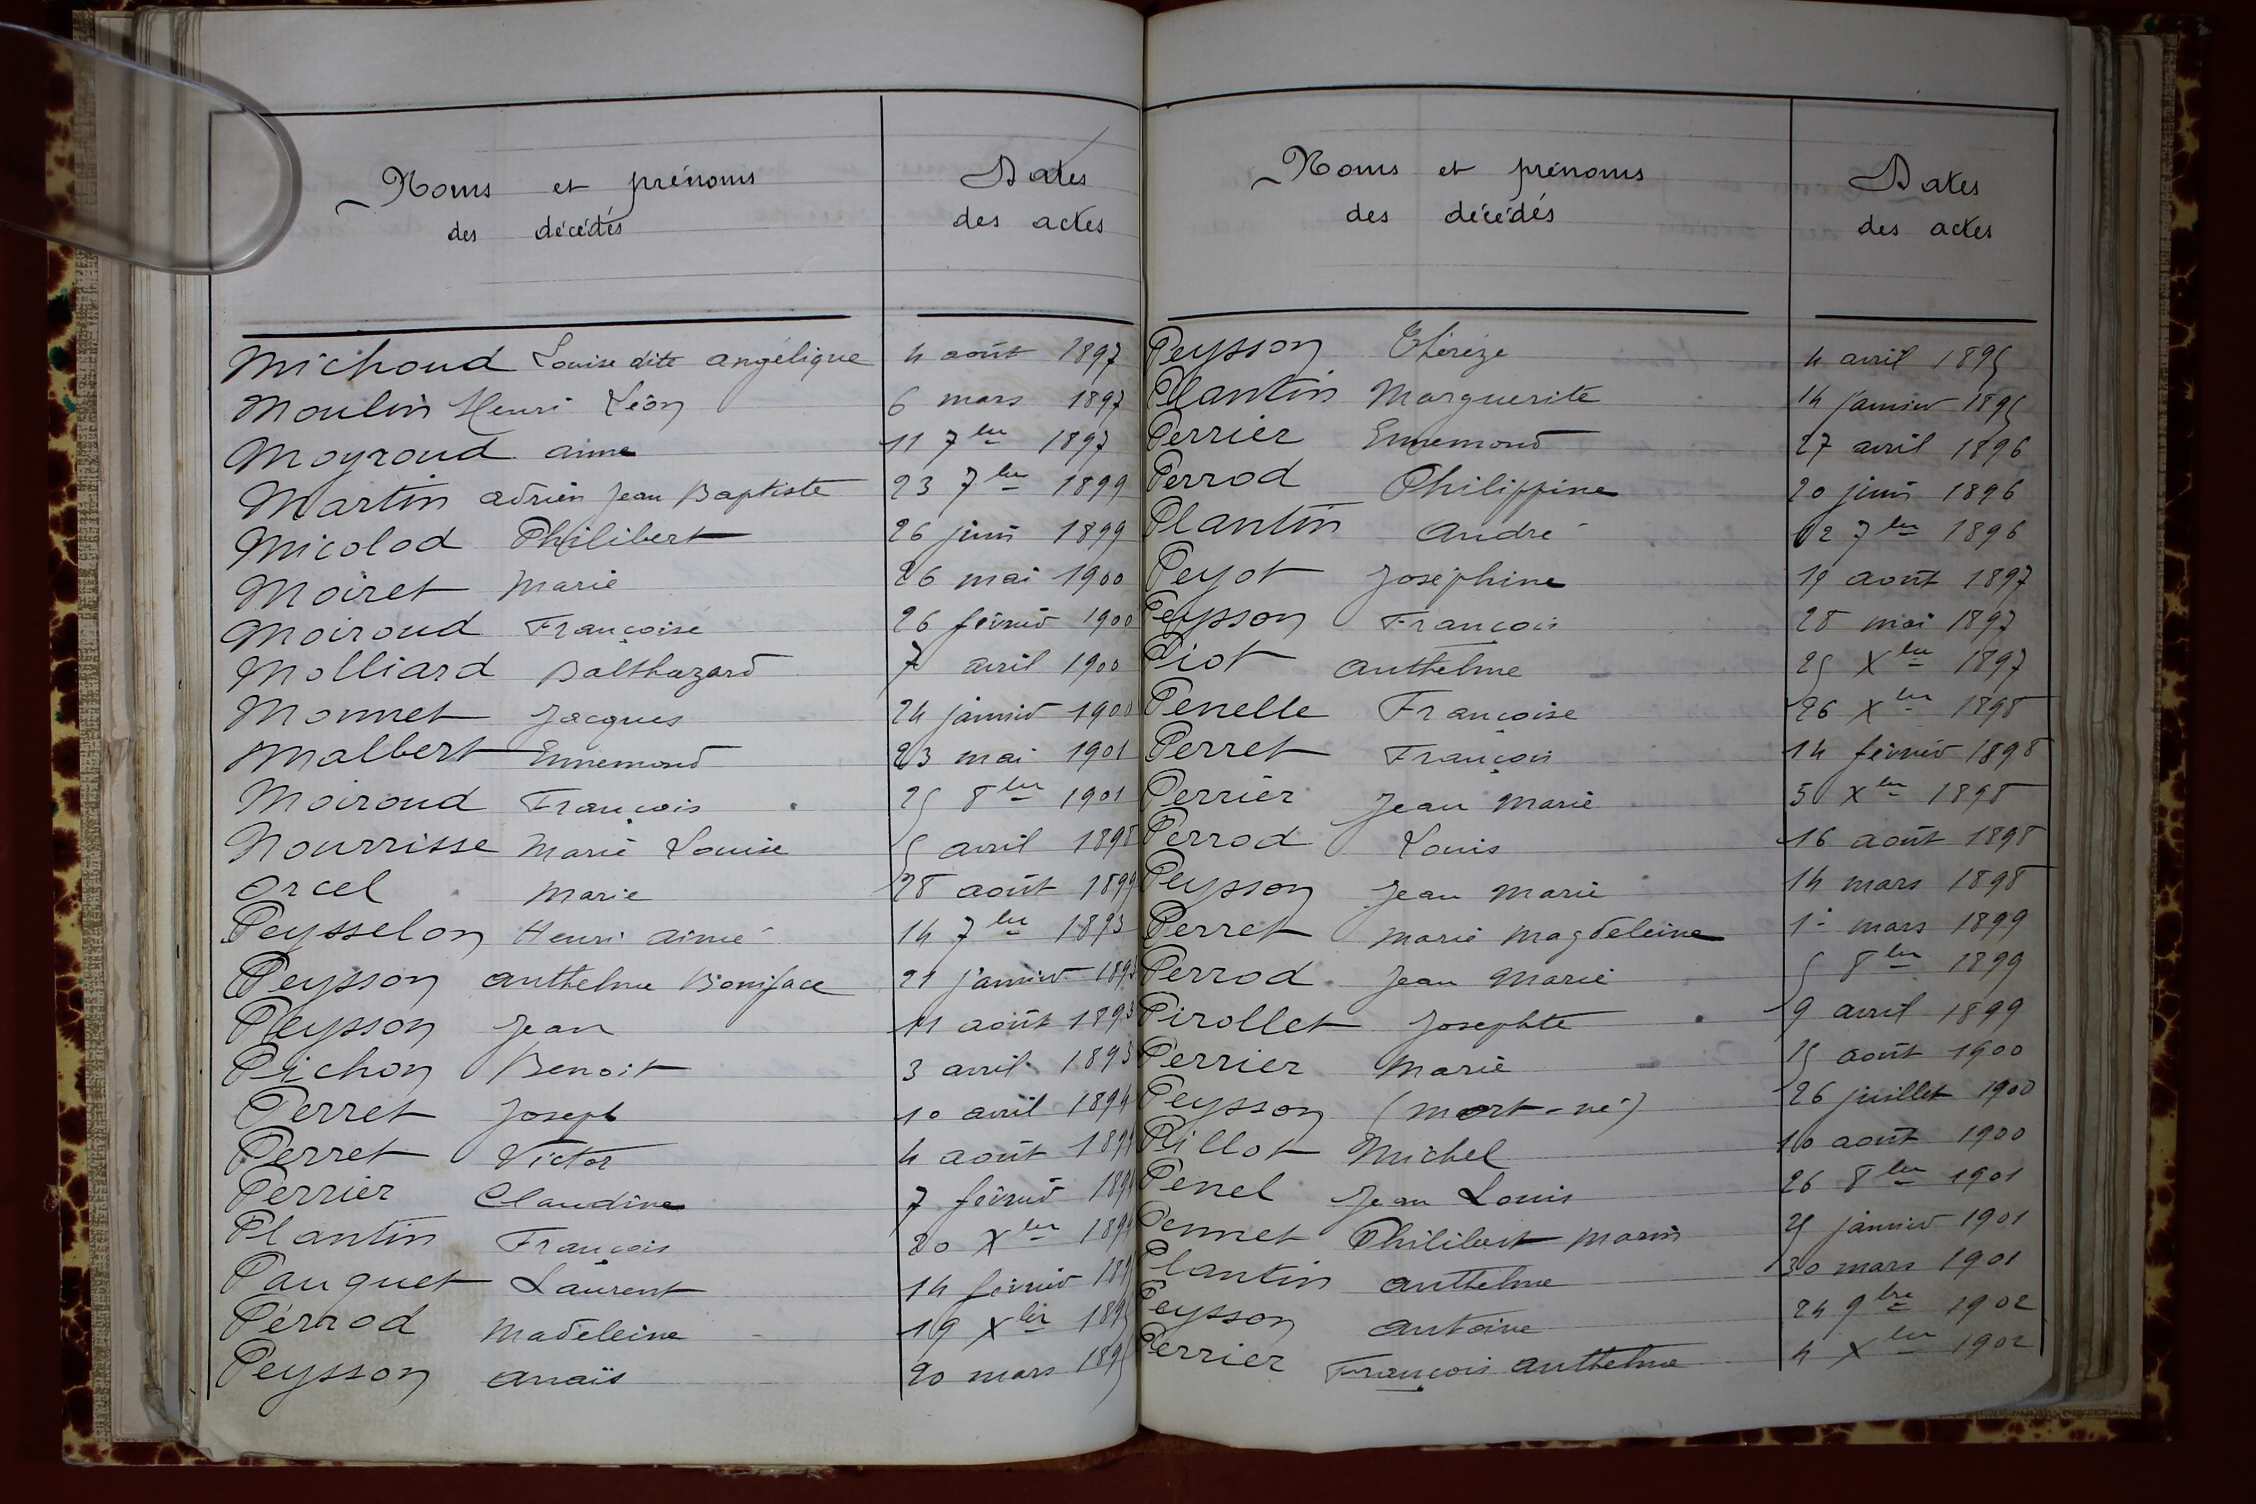 Noms et prénoms
des décédés
Dates
des actes
Michoud Louise dite angélique 4 août 1897
Moulin Henri Léon 6 mars 1897
Moyroud anne 11 7bre 1897
Martin adrien Jean Baptiste 23 7bre 1899
Micolod Philibert 26 juin 1899
Moiret Marie 26 mai 1900
Moiroud Françoise 26 février 1900
Molliard Balthazard 7 avril 1900
Monnet Jacques 24 janvier 1900
Malbert Ennemond 23 mai 1901
Moiroud François 25 8bre 1901
Nourrisse Marie Louise 5 avril 1898
Orcel Marie 28 août 1899
Peysselon Henri aimé 14 7bre 1893
Peysson anthelme Boniface 21 janvier 1893
Peysson Jean 11 août 1893
Pichon Benoit 3 avril 1893
Perret Joseph 10 avril 1894
Perret Victor 4 août 1894
Perrier Claudine 7 février 1894
Plantin François 20 Xbre 1894
Pauquet Laurent 14 février 1895
Perrod Madeleine 19 Xbre 1895
Peysson anaïs 20 mars 1895
Noms et prénoms
des décédés
Dates
des actes
Peysson Thérèze 4 avril 1895
Plantin Marguerite 14 janvier 1895
Perrier Ennemond 27 avril 1896
Perrod Philippine 20 juin 1896
Plantin andré 12 7bre 1896
Peyot Joséphine 19 août 1897
Peysson François 28 mai 1897
Piot anthelme 25 Xbre 1897
Penelle Françoise 26 Xbre 1898
Perret François 14 février 1898
Perrier Jean Marie 5 Xbre 1898
Perrod Louis 16 août 1898
Peysson Jean Marie 14 mars 1898
Perret Marie Magdeleine 1er mars 1899
Perrod Jean Marie 5 8bre 1899
Pirollet Josephte 9 avril 1899
Perrier Marie 25 août 1900
Peysson (mort-né) 26 juillet 1900
Pillot Michel 10 août 1900
Penel Jean Louis 26 8bre 1901
Pennet Philibert Marin 25 janvier 1901
Plantin anthelme 30 mars 1901
Peysson antoine 24 9bre 1902
Perrier François anthelme 4 Xbre 1902